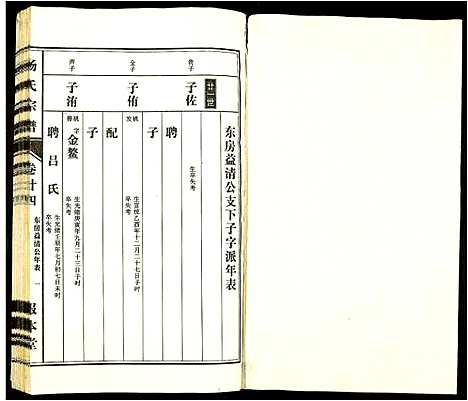 东房益清公支下子字派年表
廿世
子佐
生卒失考
聘
子
子侑
生宣统乙酉年十二月二十七子时
卒失考
配
子
子洧
字金鳌
生光绪庚寅年九月二十三日子时
卒失考
聘吕氏
生光绪壬辰年七月初七日未时
卒失考
杨氏宗谱
卷廿四
东房益清公年表
一
报本堂